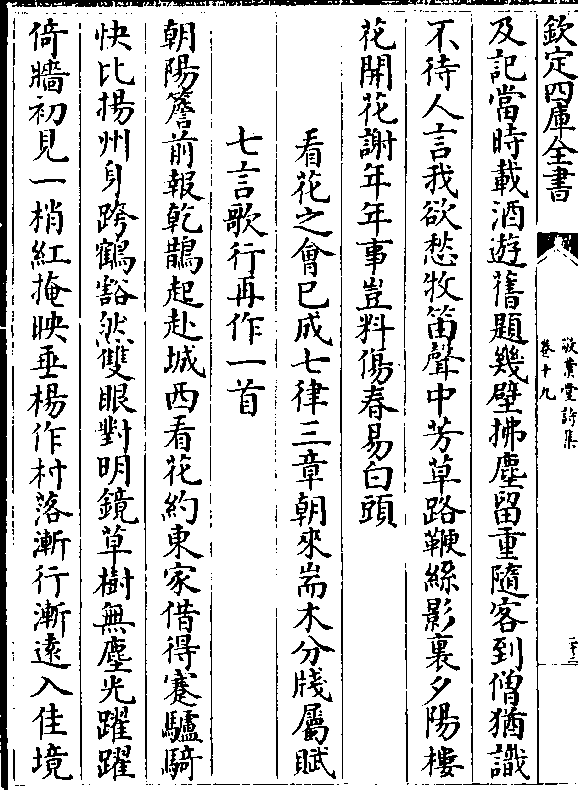 欽定四庫全書
敬業堂詩集
卷十九
及記當時載酒遊舊題幾壁拂塵留重隨客到僧猶識
不待人言我欲愁牧笛聲中芳草路鞭絲影裏夕陽樓
花開花謝年年事豈料傷春易白頭
看花之會已成七律三章朝來耑木分牋屬賦
七言歌行再作一首
朝陽簷前報乾鵲起赴城西看花約東家借得蹇驢騎
快比揚州身跨鶴豁然雙眼對明鏡草樹無塵光躍躍
倚牆初見一梢紅掩映垂楊作村落漸行漸遠入佳境